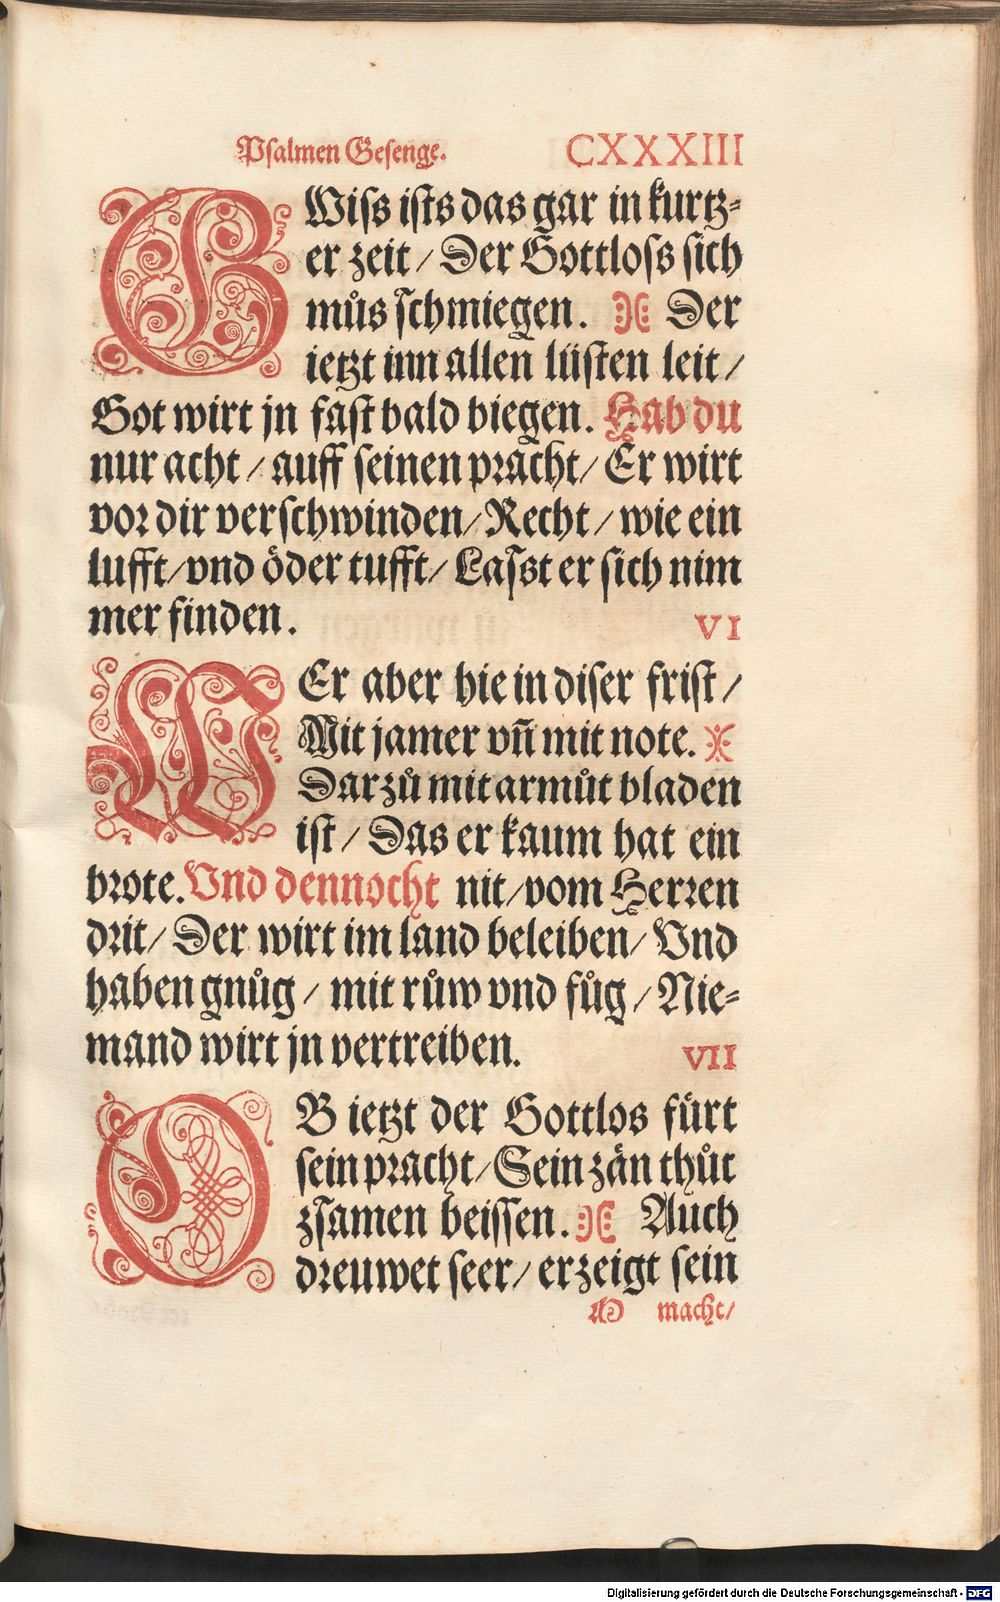 Psalmen Gesenge. CXXXIII
GWiss ists das gar in kurtz⸗
er zeit / Der Gottloss sich
můs schmiegen. Der
ietzt inn allen lüsten leit /
Got wirt jn fast bald biegen. Hab du
nur acht / auff seinen pracht / Er wirt
vor dir verschwinden / Recht / wie ein
lufft / vnd öder tufft / Lasst er sich nim
mer finden. VI
WEr aber hie in diser frist /
Mit jamer vñ mit note.
Darzů mit armůt bladen
ist / Das er kaum hat ein
brote. Vnd dennocht nit / vom Herren
drit / Der wirt im land beleiben / Vnd
haben gnůg / mit růw vnd fůg / Nie⸗
mand wirt jn vertreiben. VII
OB ietzt der Gottlos fürt
sein pracht / Sein zän thůt
zsamen beissen. Auch
dreuwet seer / erzeigt sein
macht /
Digitalisierung gefördert durch die Deutsche Forschungsgemeinschaft - DFG